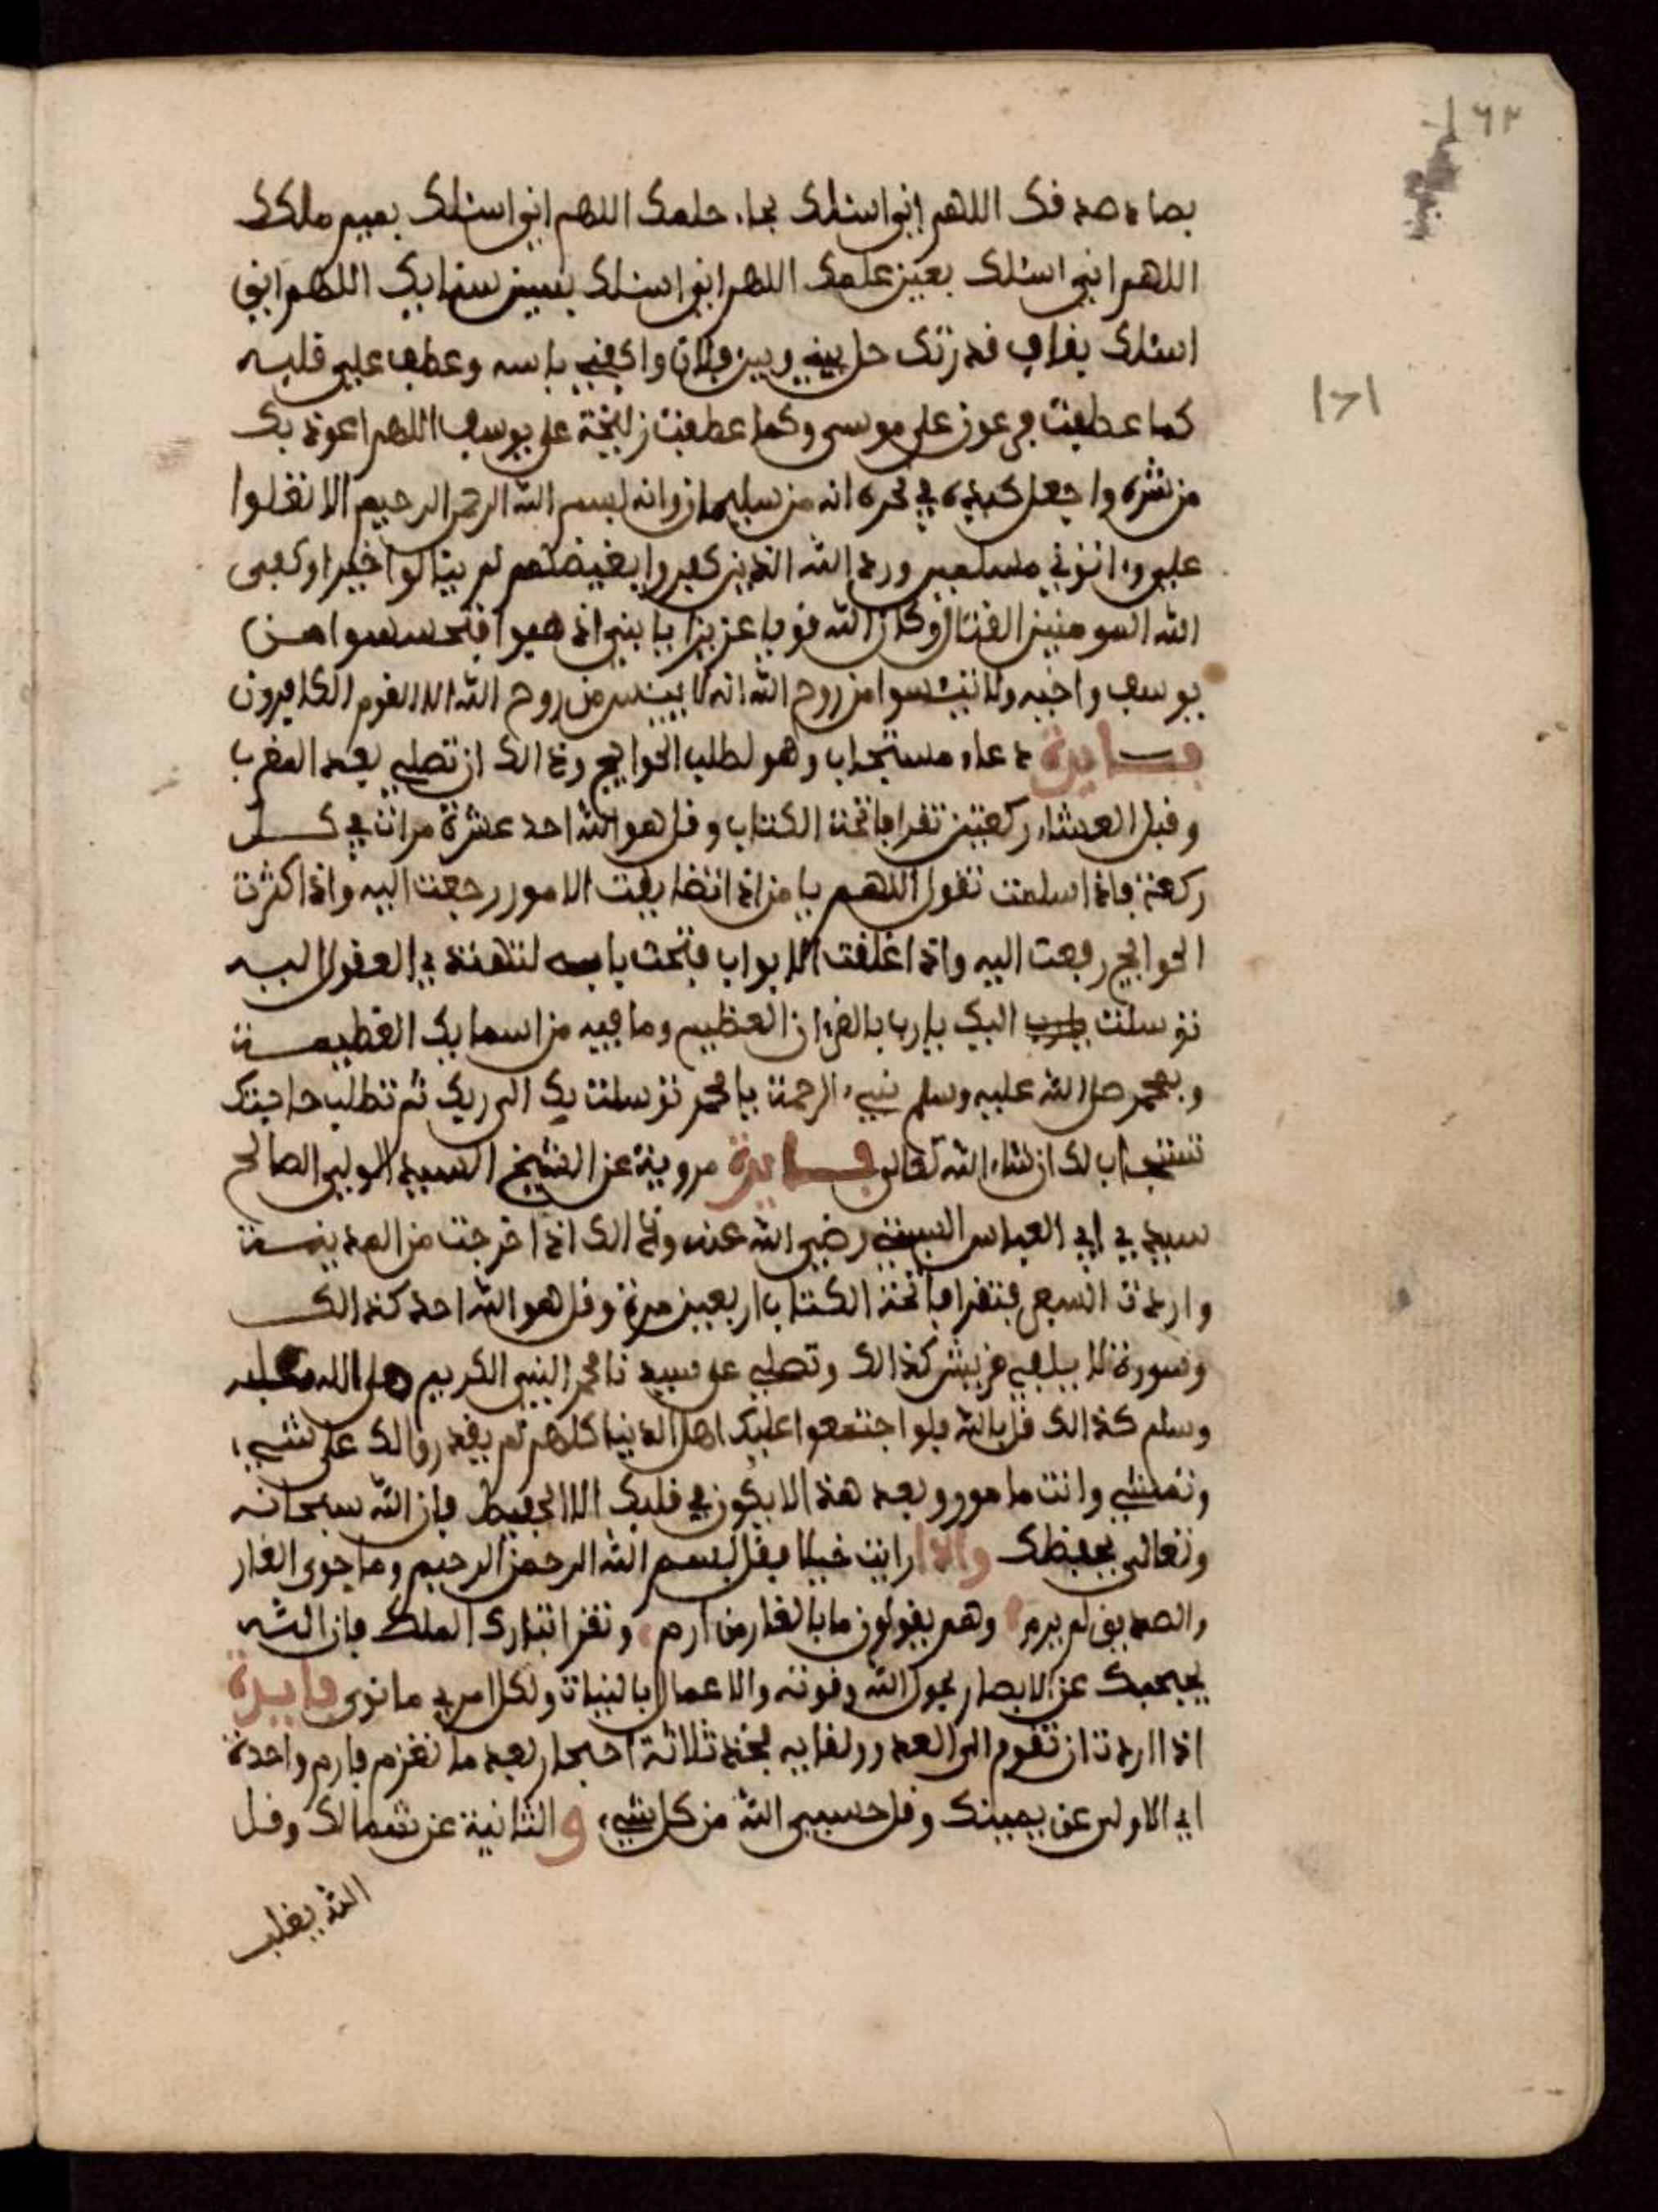 ٦٢
١٢١
بصاد صدقك اللهم اني اسئلك بحاء حلمك اللهم اني اسئلك بميم ملكك
اللهم اني اسئلك بعين علمك اللهم اني اسئلك بسين سنايك اللهم اني
اسئلك بقاف قدرتك حل بيني وبين فلان واكفني باسه وعطف علي قلبه
كما عطفت فرعون على موسى وكما عطفت زليخة على يوسف اللهم اعوذ بك
من شره واجعل كيده في نحره انه من سليمان وانه بسم الله الرحمن الرحيم الا تعلوا
علي واتوني مسلمين ورد الله الذين كفروا بغيضهم لم ينالوا خيرا وكفى
الله المومنين القتال وكان الله قويا عزيزا يا بني اذهبوا فتحسسوا من
يوسف واخيه ولا تيئسوا من روح الله انه لا ييئس من روح الله الا القوم الكافرون
فايدة دعاء مستجاب وهو لطلب الحوايج وذالك ان تصلي بعد المغرب
وقبل العشاء ركعتين تقرا فاتحة الكتاب وقل هو الله احد عشرة مرات في كل
ركعة فاذا سلمت تقول اللهم يا من اذا تضايقت الامور رجعت اليه واذا كثرت
الحوايج رفعت اليه واذا غلقت الابواب فتحت بابه لنتهنة في العقول اليه
توسلت يارب اليك يارب بالقران العظيم وما فيه من اسمايك العظيمة
وبمحمد صل الله عليه وسلم نبيء الرحمة يا محمد توسلت بك الى ربك ثم تطلب حاجتك
تستجاب لك ان شاء الله تعالى فايدة مروية عن الشيخ السيد الولي الصالح
سيدي ابي العباس السبتي رضي الله عنه وذالك اذا خرجت من المدينة
واردت السفر فتقرا فاتحة الكتاب اربعين مرة وقل هو الله احد كذالك
وسورة لايلاف قريش كذالك وتصلي على سيدنا محمد النبي الكريم صلى الله عليه
وسلم كذالك قل بالله فلوا جتمعوا عليك اهل الدنيا كلهم لم يقدروا لك على شيء
وتمشي وانت مامور وبعد هذا لا يكون في قلبك الا الحفيظ فان الله سبحانه
وتعالى يحفظك واذا رايت خيلا فقل بسم الله الرحمن الرحيم وما حوى الغار
والصديق لم يرم وهم يقولون ما بالغار من ارم وتقرا تبارك الملك فان الله
يحجبك عن الابصار بحول الله وقوته والاعمال بالنيات ولكل امرئ ما نوى فايدة
اذا اردت ان تقوم الى العدو ولقايه فخذ ثلاثة احجار بعد ما تعزم فارم واحدة
اي الاولى عن يمينك وقل حسبي الله من كل شيء والثانية عن شمالك وقل
الله يغلب